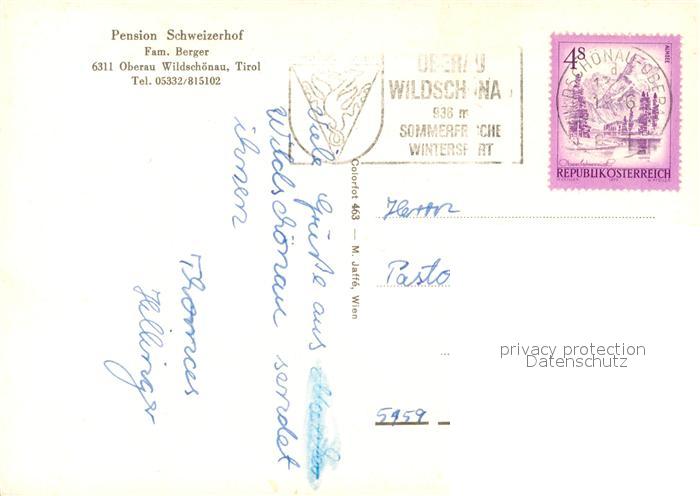 Pension Schweizerhof
Fam. Berger
6311 Oberau Wildschönau, Tirol
Tel. 05332/815102
OBERAU
WILDSCHÖNAU
936 m
SOMMERFRISCHE
WINTERSPORT
4S
ALMSEE
REPUBLIK ÖSTERREICH
Viele Grüße aus
Wildschönau sendet
ihnen
Thomas
Hellinger
Colorfot 463 — M. Jaffé, Wien
Herrn
Pasto
privacy protection
Datenschutz
5959